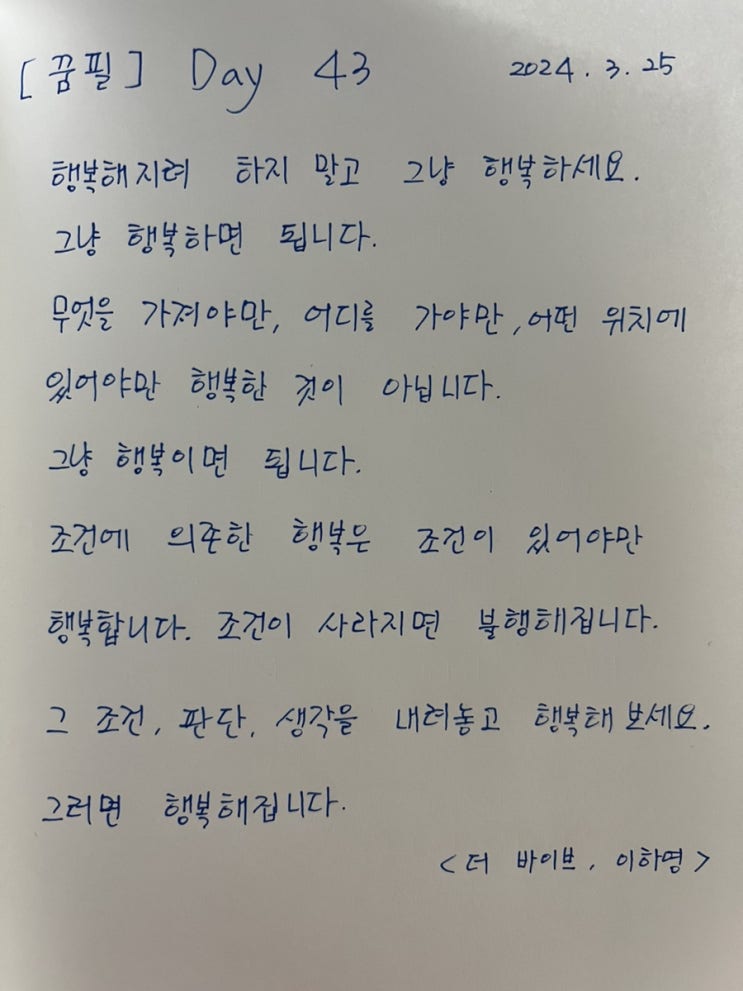 [꿈필] Day 43 2024. 3. 25
행복해지려 하지 말고 그냥 행복하세요.
그냥 행복하면 됩니다.
무엇을 가져야만, 어디를 가야만, 어떤 위치에
있어야만 행복한 것이 아닙니다.
그냥 행복이면 됩니다.
조건에 의존한 행복은 조건이 있어야만
행복합니다. 조건이 사라지면 불행해집니다.
그 조건, 판단, 생각을 내려놓고 행복해 보세요.
그러면 행복해집니다.
<더 바이브, 이하영>